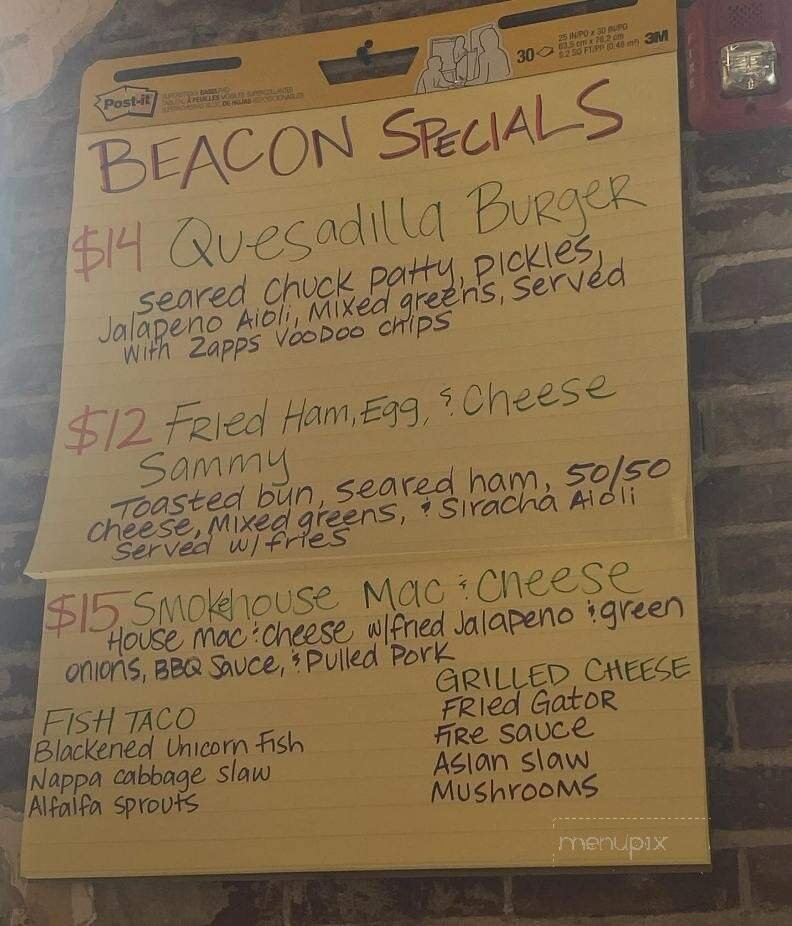 Post-it
30
25 IN/PO x 30 IN/PG
63,5 cm x 76,2 cm
5.2 SQ FT/PP (0,48 m²)
3M
BEACON SPECIALS
$14 Quesadilla Burger
seared chuck patty, pickles,
Jalapeno Aioli, Mixed greens, served
with Zapps VooDoo chips
$12 Fried Ham, Egg, & Cheese
Sammy
Toasted bun, seared ham, 50/50
cheese, Mixed greens, & Siracha Aioli
served w/fries
$15 Smokehouse Mac & cheese
House mac & cheese w/fried Jalapeno & green
onions, BBQ Sauce, & Pulled Pork
FISH TACO
Blackened Unicorn Fish
Nappa cabbage slaw
Alfalfa sprouts
GRILLED CHEESE
Fried Gator
Fire sauce
Asian slaw
Mushrooms
menupix